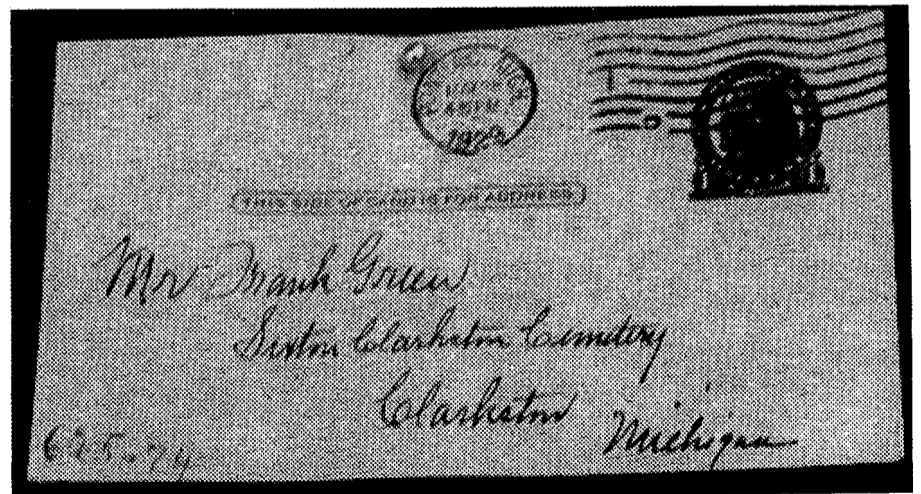 THIS SIDE OF CARD IS FOR ADDRESS
Mr Frank Green
Sexton Clarkston Cemetery
Clarkston
Michigan